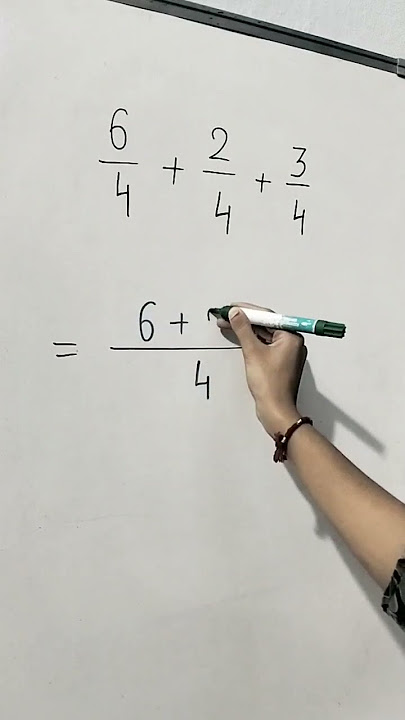 6/4 + 2/4 + 3/4
= 6 + / 4